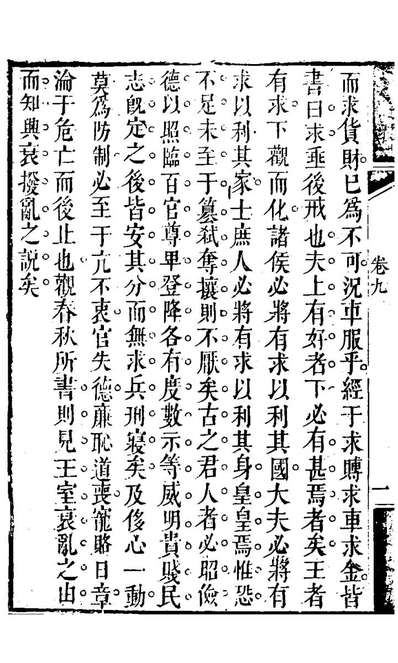 卷九
一
而求貨財已爲不可況車服乎經于求賻求車求金皆
書曰求垂後戒也夫上有好者下必有甚焉者矣王者
有求下觀而化諸侯必將有求以利其國大夫必將有
求以利其家士庶人必將有求以利其身皇皇焉惟恐
不足未至于篡弑奪攘則不厭矣古之君人者必昭儉
德以照臨百官尊卑登降各有度數示等威明貴賤民
志旣定之後皆安其分而無求兵刑寢矣及侈心一動
莫爲防制必至于亢不衷官失德廉恥道喪寵賂日章
淪于危亡而後止也觀春秋所書則見王室衰亂之由
而知興衰撥亂之説矣